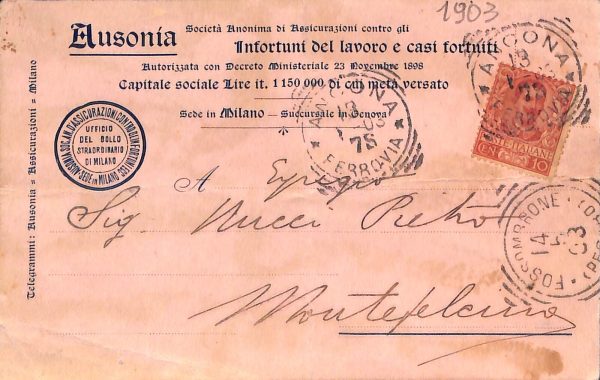 1903
Ausonia
Società Anonima di Assicurazioni contro gli
Infortuni del lavoro e casi fortuiti
Autorizzata con Decreto Ministeriale 23 Novembre 1898
Capitale sociale Lire it. 1 150 000 di cui metà versato
Sede in Milano — Succursale in Genova
*
Telegrammi: Ausonia = Assicurazioni = Milano
UFFICIO
DEL BOLLO
STRAORDINARIO
DI MILANO
SEDE IN MILANO
ANCONA
13
03
7S
FERROVIA
ANCONA
13
7S
POSTE ITALIANE
CENT 10
FOSSOMBRONE
14
03
A Egregio
Sig. Nucci Pietro
Montefelcino